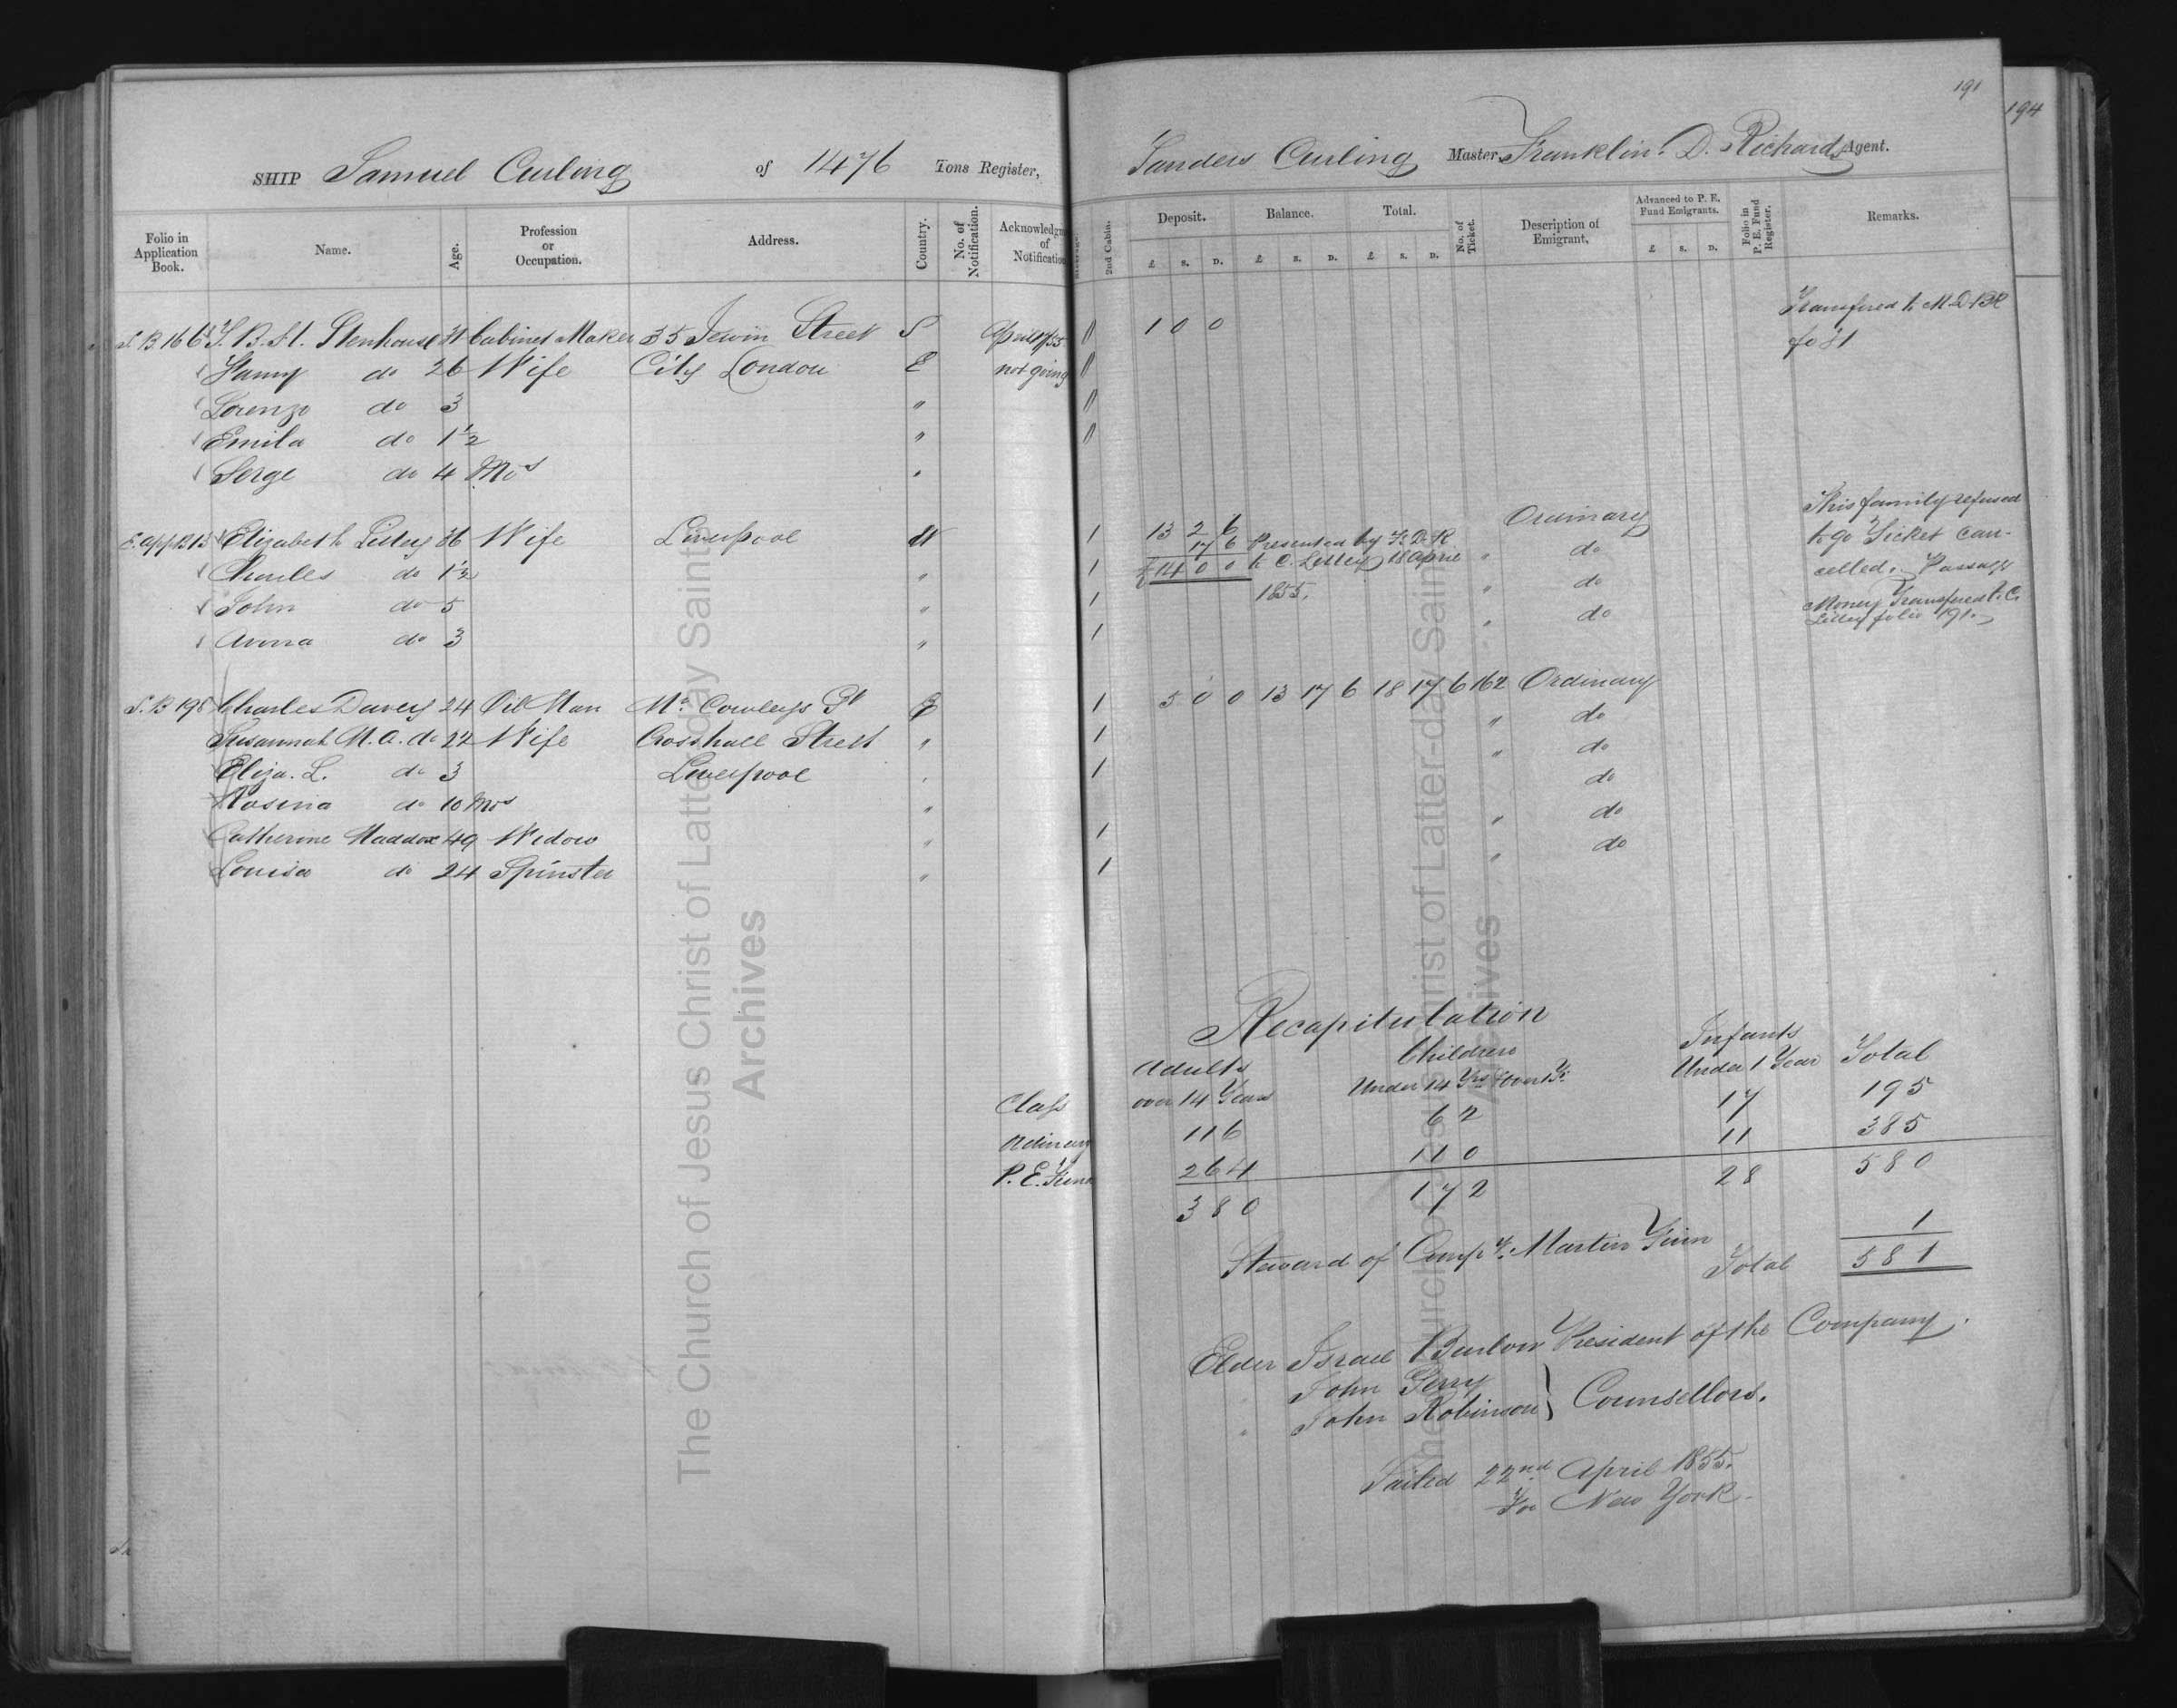 SHIP Samuel Curling of 1476 Tons Register,
Folio in Application Book. Name. Age. Profession or Occupation. Address. Country. No. of Notification. Acknowledgm of Notification
S. B 166 T. B. H. Stenhouse 31 Cabinet Maker 35 Jewin Street S April 17/55
Fanny do 26 Wife City London E not going
Lorenzo do 3 "
Emila do 1 1/2 "
Serge do 4 Mos "
E. app B 13 Elizabeth Lilley 36 Wife Liverpool
Charles do 1 1/2 "
John do 5 "
Anna do 3 "
S. B 198 Charles Davey 24 Oil Man Mr Cowleys E
Susannah M. A. do 22 Wife Crosshall Street "
Eliza. L. do 3 Liverpool "
Rosena do 10 Mos "
Catherine Maddox 49 Widow "
Louisa do 24 Spinster "
Class
Ordinary
P. E. Fund
191
194
Sanders Curling Master Franklin. D. Richards Agent.
2nd Cabin. Deposit. Balance. Total. No. of Ticket. Description of Emigrant. Advanced to P. E. Fund Emigrants. Folio in P. E. Fund Register. Remarks.
£ S. D. £ S. D. £ S. D. £ S. D.
1 0 0 Transfered to M. D. B
fo 81
This family refused
1 13 2 6 Ordinary to go Ticket can-
17 6 Presented by F. D. R
1 £ 14 0 0 to C. Lilley 18 April " do celled. Passage
1 1855. " do Money Transfered to C.
1 " do Lilley folio 191.
1 5 0 0 13 17 6 18 17 6 162 Ordinary
1 " do
1 " do
do
1 " do
1 " do
Recapitulation
Adults Children Infants
over 14 Years Under 14 Yrs & over 1 Yr. Under 1 Year Total
116 62 17 195
264 110 11 385
380 172 28 580
Steward of Compy. Martin Finn 1
Total 581
Elder Israel Barlow President of the Company.
John Perry
" John Robinson } Counsellors.
Sailed 22nd April 1855.
For New York.
The Church of Jesus Christ of Latter-day Saints
Archives
The Church of Jesus Christ of Latter-day Saints
Archives